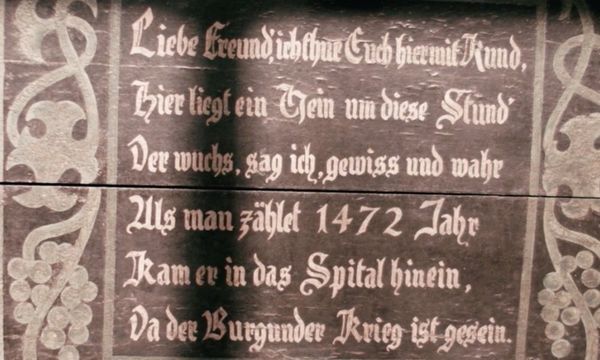 Liebe Freund, ich thue Euch hiermit Kund,
Hier liegt ein Wein um diese Stund'
Der wuchs, sag ich, gewiss und wahr
Als man zählet 1472 Jahr
Kam er in das Spital hinein,
Da der Burgunder Krieg ist gesein.